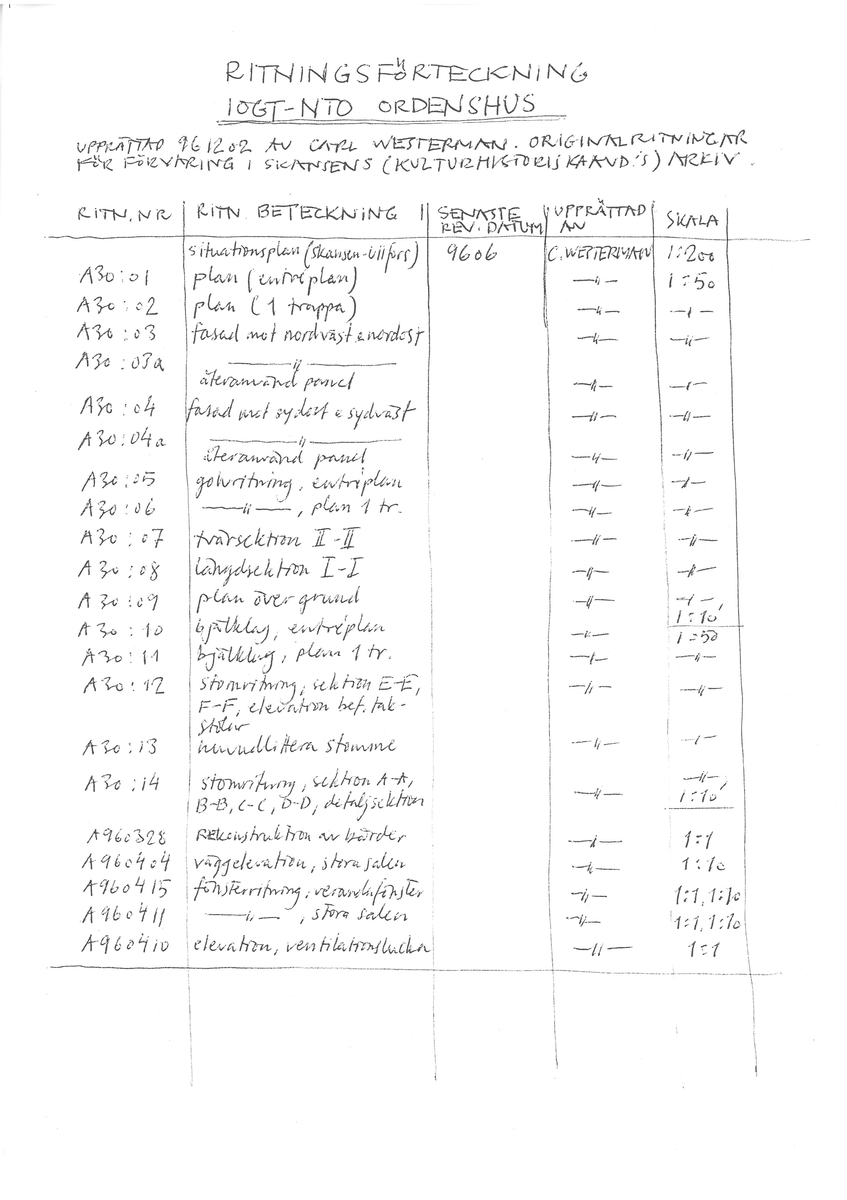 RITNINGSFÖRTECKNING
IOGT-NTO ORDENSHUS
UPPRÄTTAD 961202 AV CARL WESTERMAN. ORIGINALRITNINGAR
FÖR FÖRVARING I SKANSENS (KULTURHISTORISKA AVD:S) ARKIV.
RITN. NR RITN. BETECKNING SENASTE REV. DATUM UPPRÄTTAD AV SKALA
situationsplan (skansen- 9606 C. WESTERMAN 1:200
A30:01 plan (entréplan) —〃— 1:50
A30:02 plan (1 trappa) —〃— —〃—
A30:03 fasad mot nordväst & nordost —〃— —〃—
A30:03a —〃—
återanvänd panel —〃— —〃—
A30:04 fasad mot sydost & sydväst —〃— —〃—
A30:04a —〃—
återanvänd panel —〃— —〃—
A30:05 golvritning, entréplan —〃— —〃—
A30:06 —〃—, plan 1 tr. —〃— —〃—
A30:07 tvärsektion II-II —〃— —〃—
A30:08 längdsektion I-I —〃— —〃—
A30:09 plan över grund —〃— —〃—, 1:10
A30:10 bjälklag, entréplan —〃— 1:50
A30:11 bjälklag, plan 1 tr. —〃— —〃—
A30:12 stomritning, sektion E-E, —〃— —〃—
F-F, elevation bef. tak-
stolar
A30:13 stomme —〃— —〃—
A30:14 stomritning, sektion A-A, —〃— —〃—,
B-B, C-C, D-D, detaljsektion 1:10
A960328 Rekonstruktion av bårder —〃— 1:1
A960404 väggelevation, stora salen —〃— 1:10
A960415 fönsterritning, verandafönster —〃— 1:1, 1:10
A960411 —〃—, stora salen —〃— 1:1, 1:10
A960410 elevation, ventilationslucka —〃— 1:1